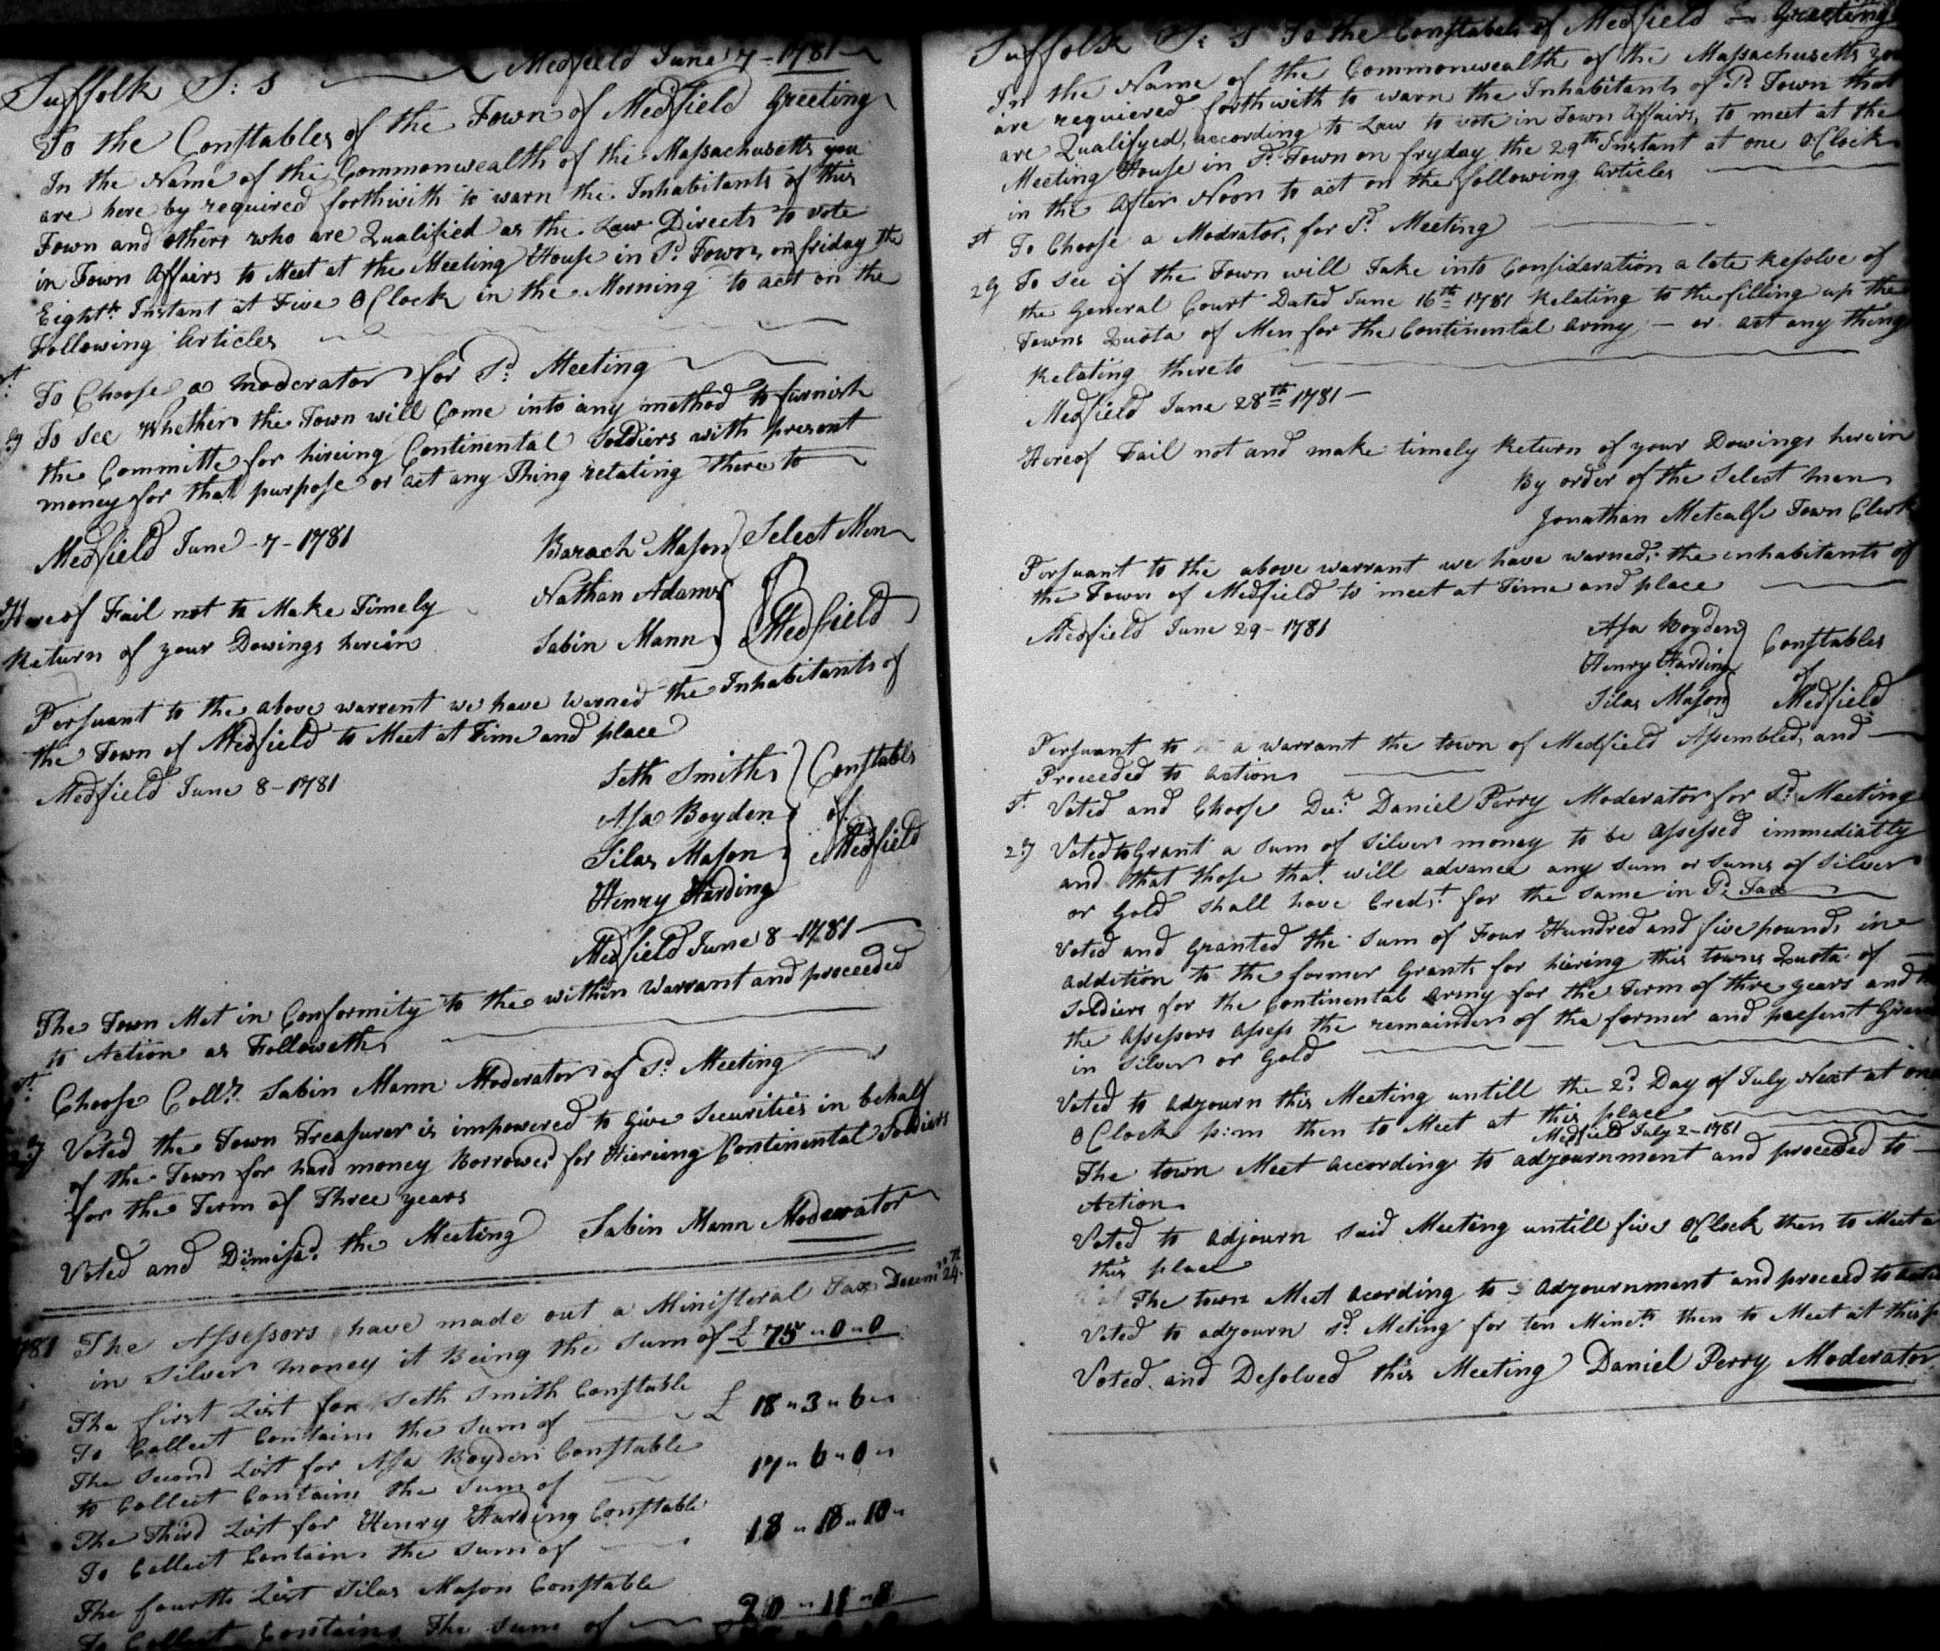 Medfield June 7 - 1781
Suffolk S: s
To the Constables of the Town of Medfield Greeting
In the Name of the Commonwealth of the Massachusetts you
are here by required forthwith to warn the Inhabitants of this
Town and others who are Qualified as the Law Directs to vote
in Town Affairs to Meet at the Meeting House in Sd. Town on friday the
Eighth Instant at Five OClock in the Morning to act on the
Following Articles
To Choose a moderator for Sd: Meeting
To See Whether the Town will Come into any method to furnish
the Committe for hireing Continental Soldiers with present
money for that purpose or act any Thing relating there to
Medfield June - 7 - 1781
Barach Mason Select Men
Nathan Adams
Hereof Fail not to Make Timely
Sabin Mann Medfield
Return of your Dowings herein
Persuant to the above warrent we have warned the Inhabitants of
the Town of Medfield to Meet at Time and place
Medfield June 8 - 1781
Seth Smith Constables
Asa Boyden of
Silas Mason Medfield
Henry Harding
Medfield June 8 - 1781
The Town Met in Conformity to the within Warrant and proceeded
to Action as Followeth
Choose Coll:n. Sabin Mann Moderator of Sd. Meeting
Voted the Town Treasurer is impowered to Give Securities in behalf
of the Town for hard money Borrowed for Hiering Continental Soldiers
for the Term of Three years
Voted and Dimisd. the Meeting Sabin Mann Moderator
1781 The Assessors have made out a Ministeral Tax Decemr 24th
in Silver money it Being the Sum of £ 75 " 0 " 0
The first List for Seth Smith Constable
To Collect Contains the Sum of £ 18 " 3 " 6 "
The Second List for Asa Boyden Constable
to Collect Contains the Sum of 17 " 6 " 0 "
The Third List for Henry Harding Constable
To Collect Contains the Sum of 18 " 18 " 10 "
The fourth List Silas Mason Constable
To Collect Contains The Sum of 20 " 11 " 8
Suffolk S: S To the Constabels of Medfield Greeting
In the Name of the Commonwealth of the Massachusetts you
are requiered forthwith to warn the Inhabitants of Sd. Town that
are Qualifyed, according to Law to vote in Town Affairs, to meet at the
Meeting House in Sd. Town on fryday the 29th Instant at one OClock
in the After Noon to act on the following Articles
st To Choose a Modrator, for Sd. Meeting
2y To see if the Town will Take into Consideration a late Resolve of
the General Court Dated June 16th 1781 Relating to the filling up the
Towns Quota of Men for the Continental Army - or act any thing
Relating thereto
Medfield June 28th 1781 -
Hereof Fail not and make timely Return of your Dowings herein
By order of the Select men
Jonathan Metcalf Town Clerk
Persuant to the above warrant we have warned, the inhabitants of
the Town of Medfield to meet at Time and place
Medfield June 29 - 1781
Asa Boyden Constables
Henry Harding of
Silas Mason Medfield
Persuant to a warrant the town of Medfield Assembled, and
Proceeded to action
st. Voted and Choose Dea.n Daniel Perry Moderator for Sd. Meeting
2y Voted to Grant a sum of Silver money to be assessed immediatly
and that those that will advance any sum or sums of silver
or Gold shall have Credt. for the same in Sd. Tax
Voted and Granted the sum of Four Hundred and five pounds in
addition to the former Grants for hiering this towns Quota of
Soldiers for the Continental Army for the Term of thre years and
the assessors assess the remainder of the former and present Grant
in silver or Gold
Voted to adjourn this Meeting untill the 2d. Day of July Next at one
OClock p:m then to Meet at this place
Medfield July 2 - 1781
The town Meet according to adjournment and proceded to
Action
Voted to adjourn said Meeting untill five OClock then to Meet at
this place
The town Meet acording to adjournment and proceed to
Voted to adjourn sd. Meting for ten Minets then to Meet at this
Voted and Desolved this Meeting Daniel Perry Moderator